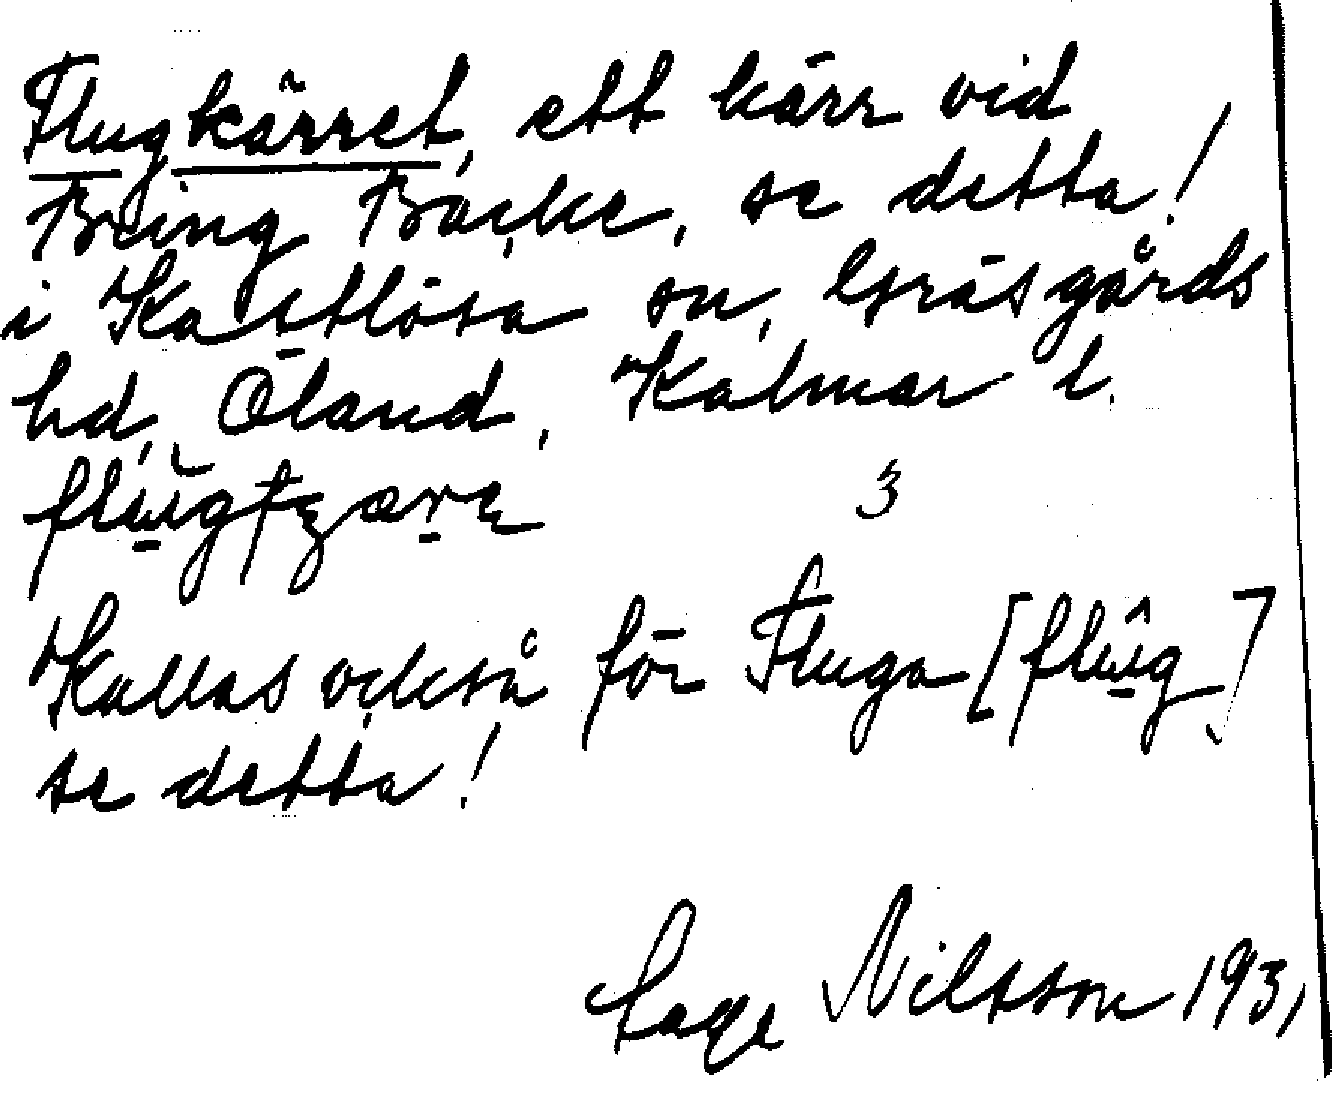 Flugkärret, ett kärr vid
Bring Backe, se detta!
i Kastlösa sn, Gräsgårds
hd, Öland, Kalmar l.
3
Kallas också för Fluga [flɯ̂g]
se detta!
Sage Nilsson 1931